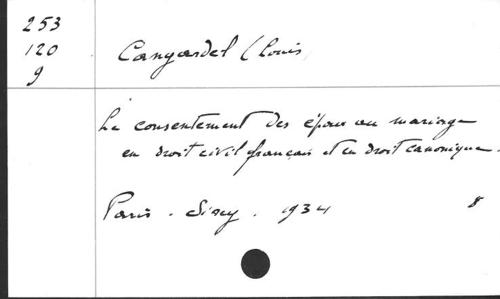 253
120
9
Cangardel (Louis)
Le consentement des époux au mariage
en droit civil français et en droit canonique.
Paris. Sirey. 1934 8